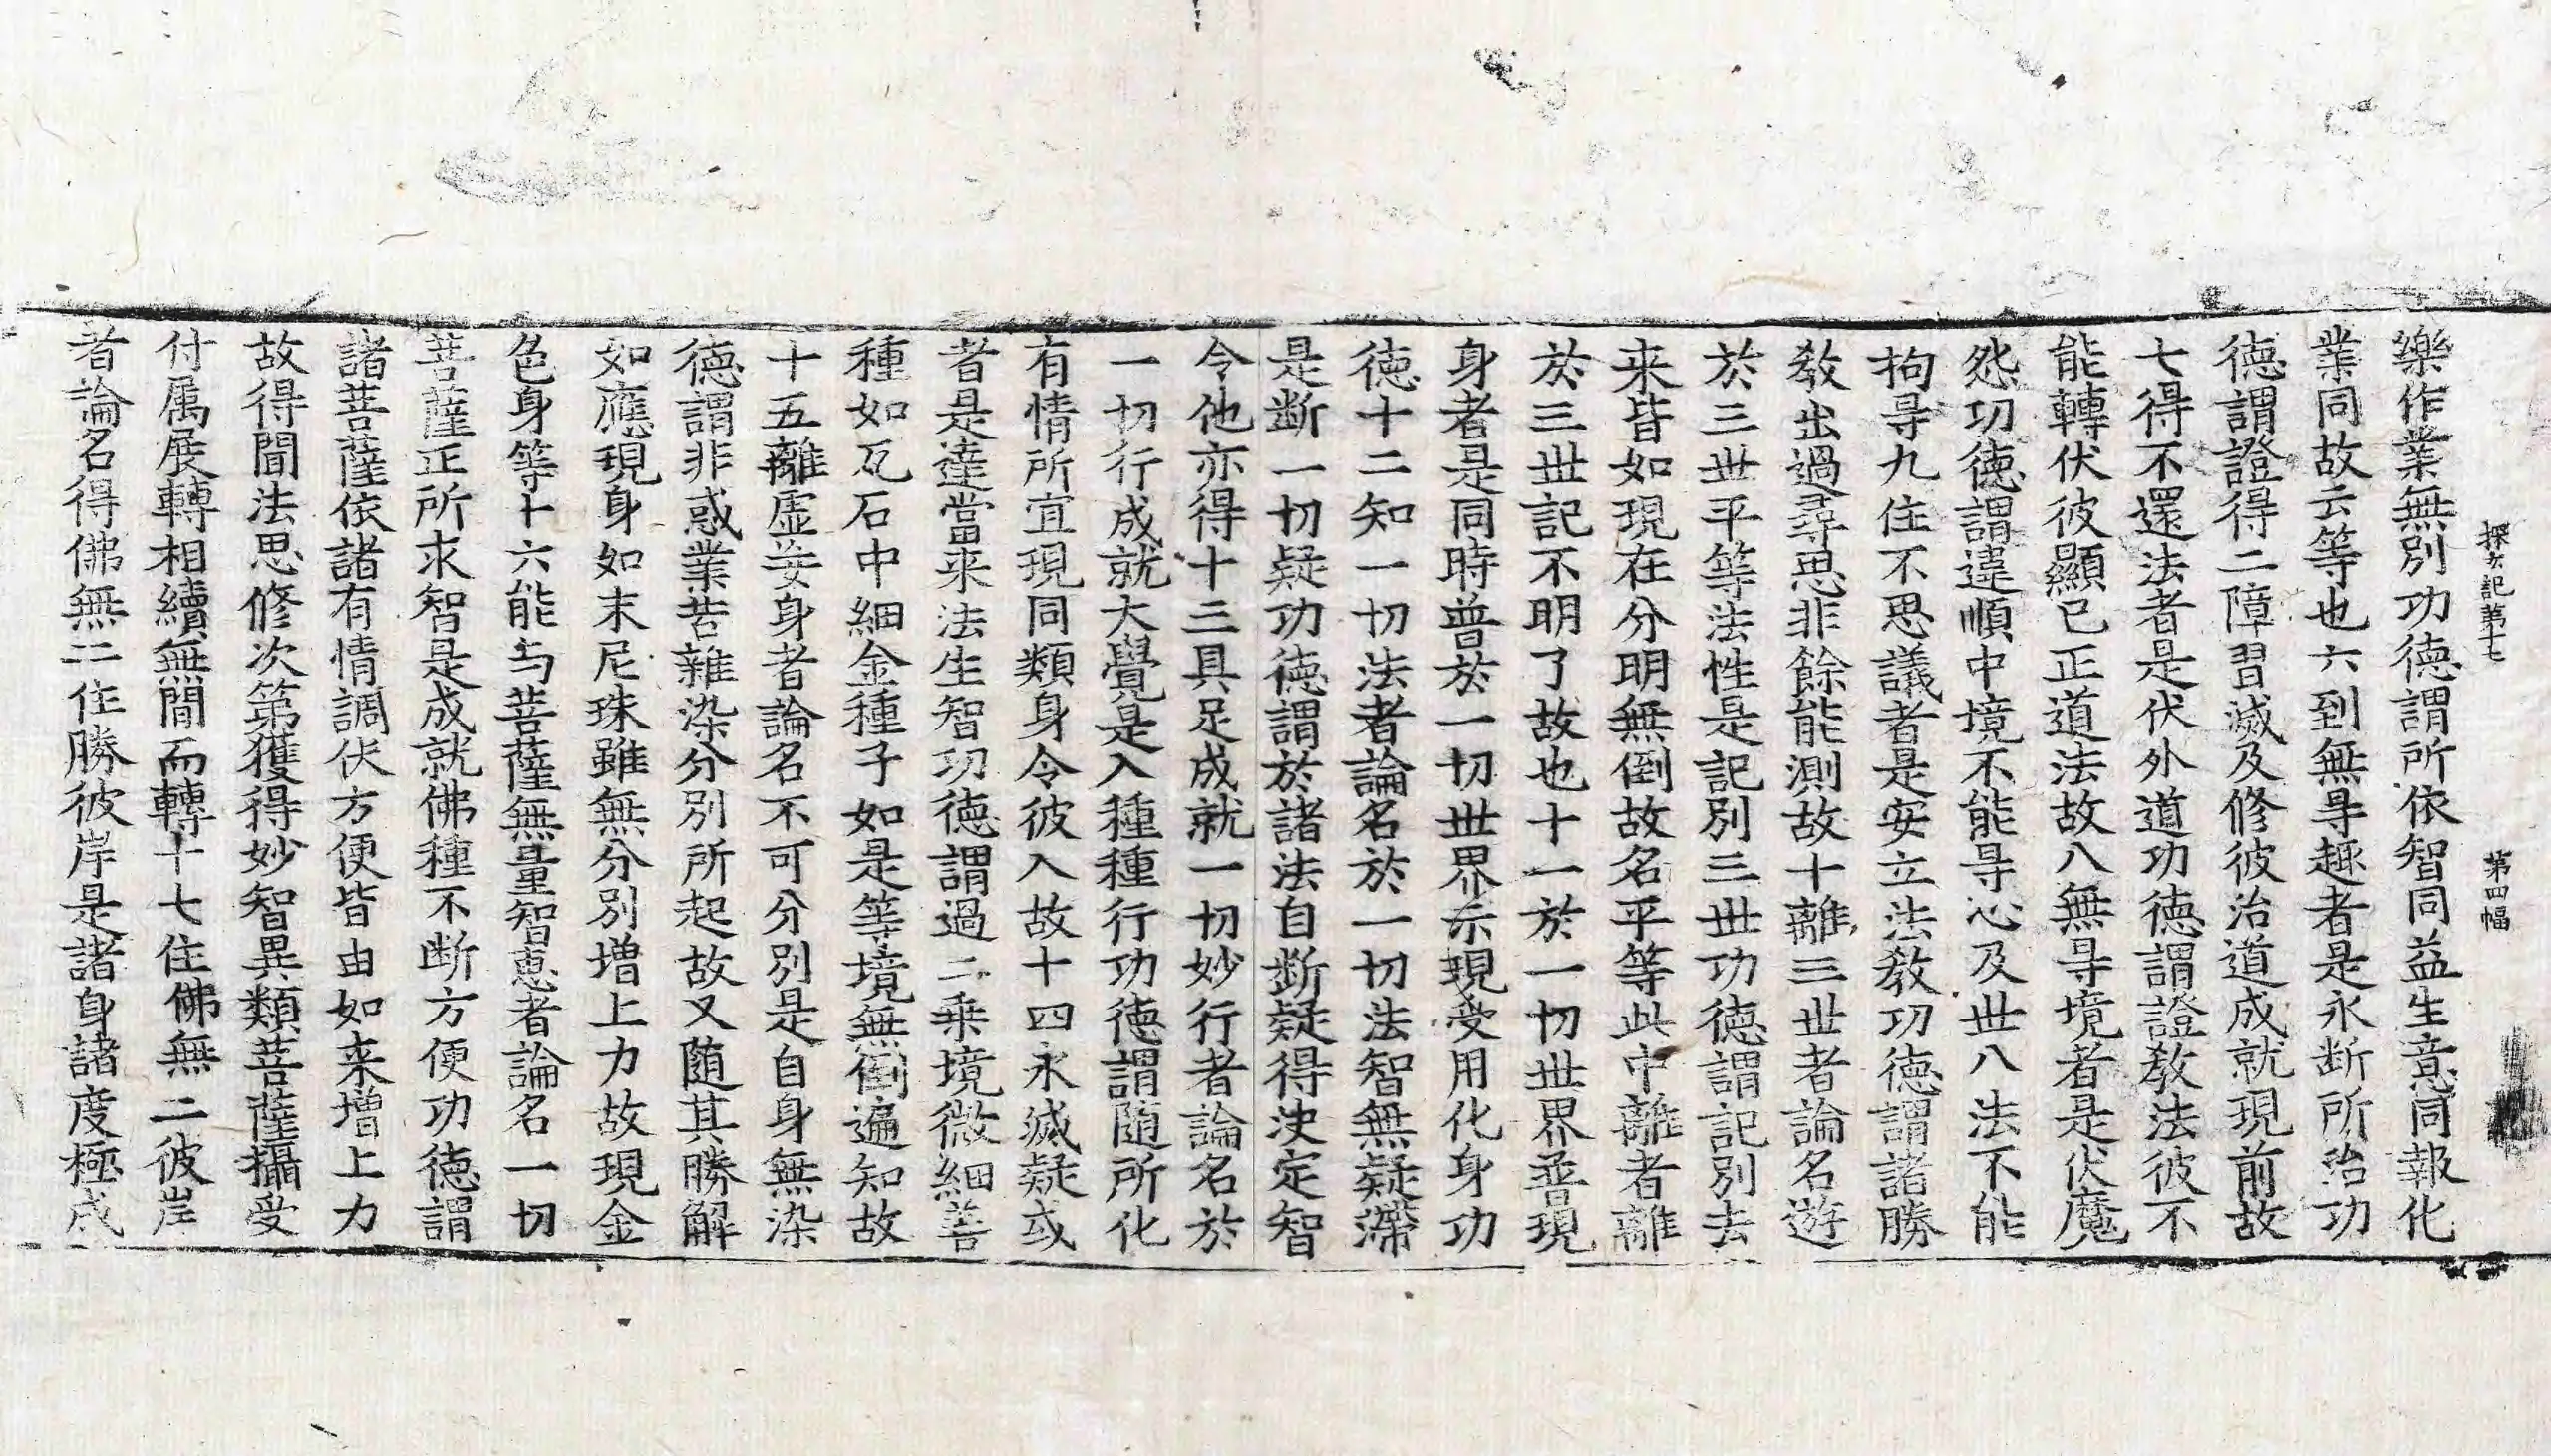 探玄記第十七　第四幅
樂作業無別功德謂所依智同益生意同報化
業同故云等也六到無㝵趣者是永断所治功
德謂證得二障習滅及修彼治道成就現前故
七得不還法者是伏外道功德謂證教法彼不
能轉伏彼顯已正道法故八無㝵境者是伏魔
怨功德謂違順中境不能㝵心及世八法不能
拘㝵九住不思議者是安立法教功德謂諸勝
教出過尋思非餘能測故十離三世者論名遊
於三世平等法性是記別三世功德謂記別去
来皆如現在分明無倒故名平等此中離者離
於三世記不明了故也十一於一切世界普現
身者是同時普於一切世界示現受用化身功
德十二知一切法者論名於一切法智無疑滯
是断一切疑功德謂於諸法自断疑得決定智
令他亦得十三具足成就一切妙行者論名於
一切行成就大覺是入種種行功德謂随所化
有情所宜現同類身令彼入故十四永滅疑或
者是達當来法生智功德謂過二乗境微細善
種如瓦石中細金種子如是等境無倒遍知故
十五離虛妄身者論名不可分別是自身無染
德謂非惑業苦雜染分別所起故又随其勝解
如應現身如末尼珠雖無分別増上力故現金
色身等十六能与菩薩無量智恵者論名一切
菩薩正所求智是成就佛種不断方便功德謂
諸菩薩依諸有情調伏方便皆由如来増上力
故得聞法思修次第獲得妙智異類菩薩攝受
付属展轉相續無間而轉十七住佛無二彼岸
者論名得佛無二住勝彼岸是諸身諸度極成